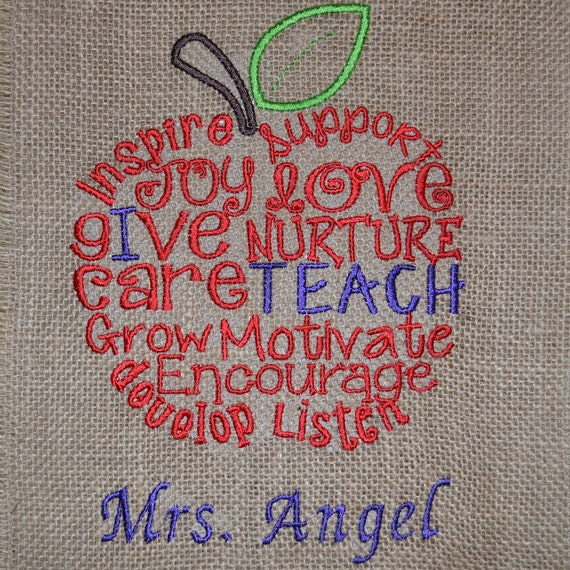 Inspire support
JOY LOVE
gIve NURTURE
care TEACH
Grow Motivate
Encourage
develop Listen
Mrs. Angel